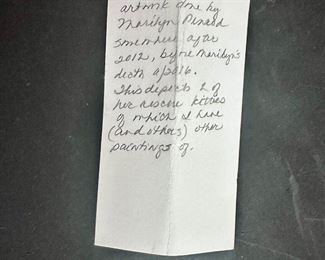 artwork done by
Marilyn
somewhere after
2012, before Marilyn's
death 2016.
This depicts 2 of
her rescue kitties
of which I have
(and others) other
paintings of.